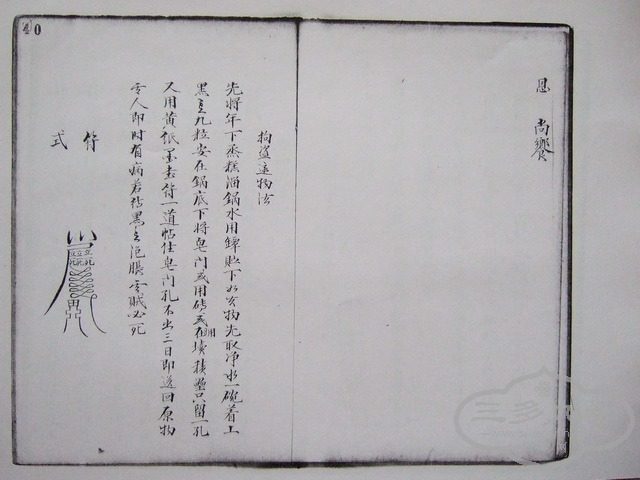 40
恩　尚饗
拘盜還物法
先將年下蒸糕湢鍋水用罈貯下如失物先取净水一碗着上
黑豆九粒安在鍋底下將皂門或用磚或用在墳接壘只留一孔
又用黄紙墨書符一道帖住皂門孔不出三日即送回原物
令人即时有病若把黑豆泡脹令賊必死
符式
三多